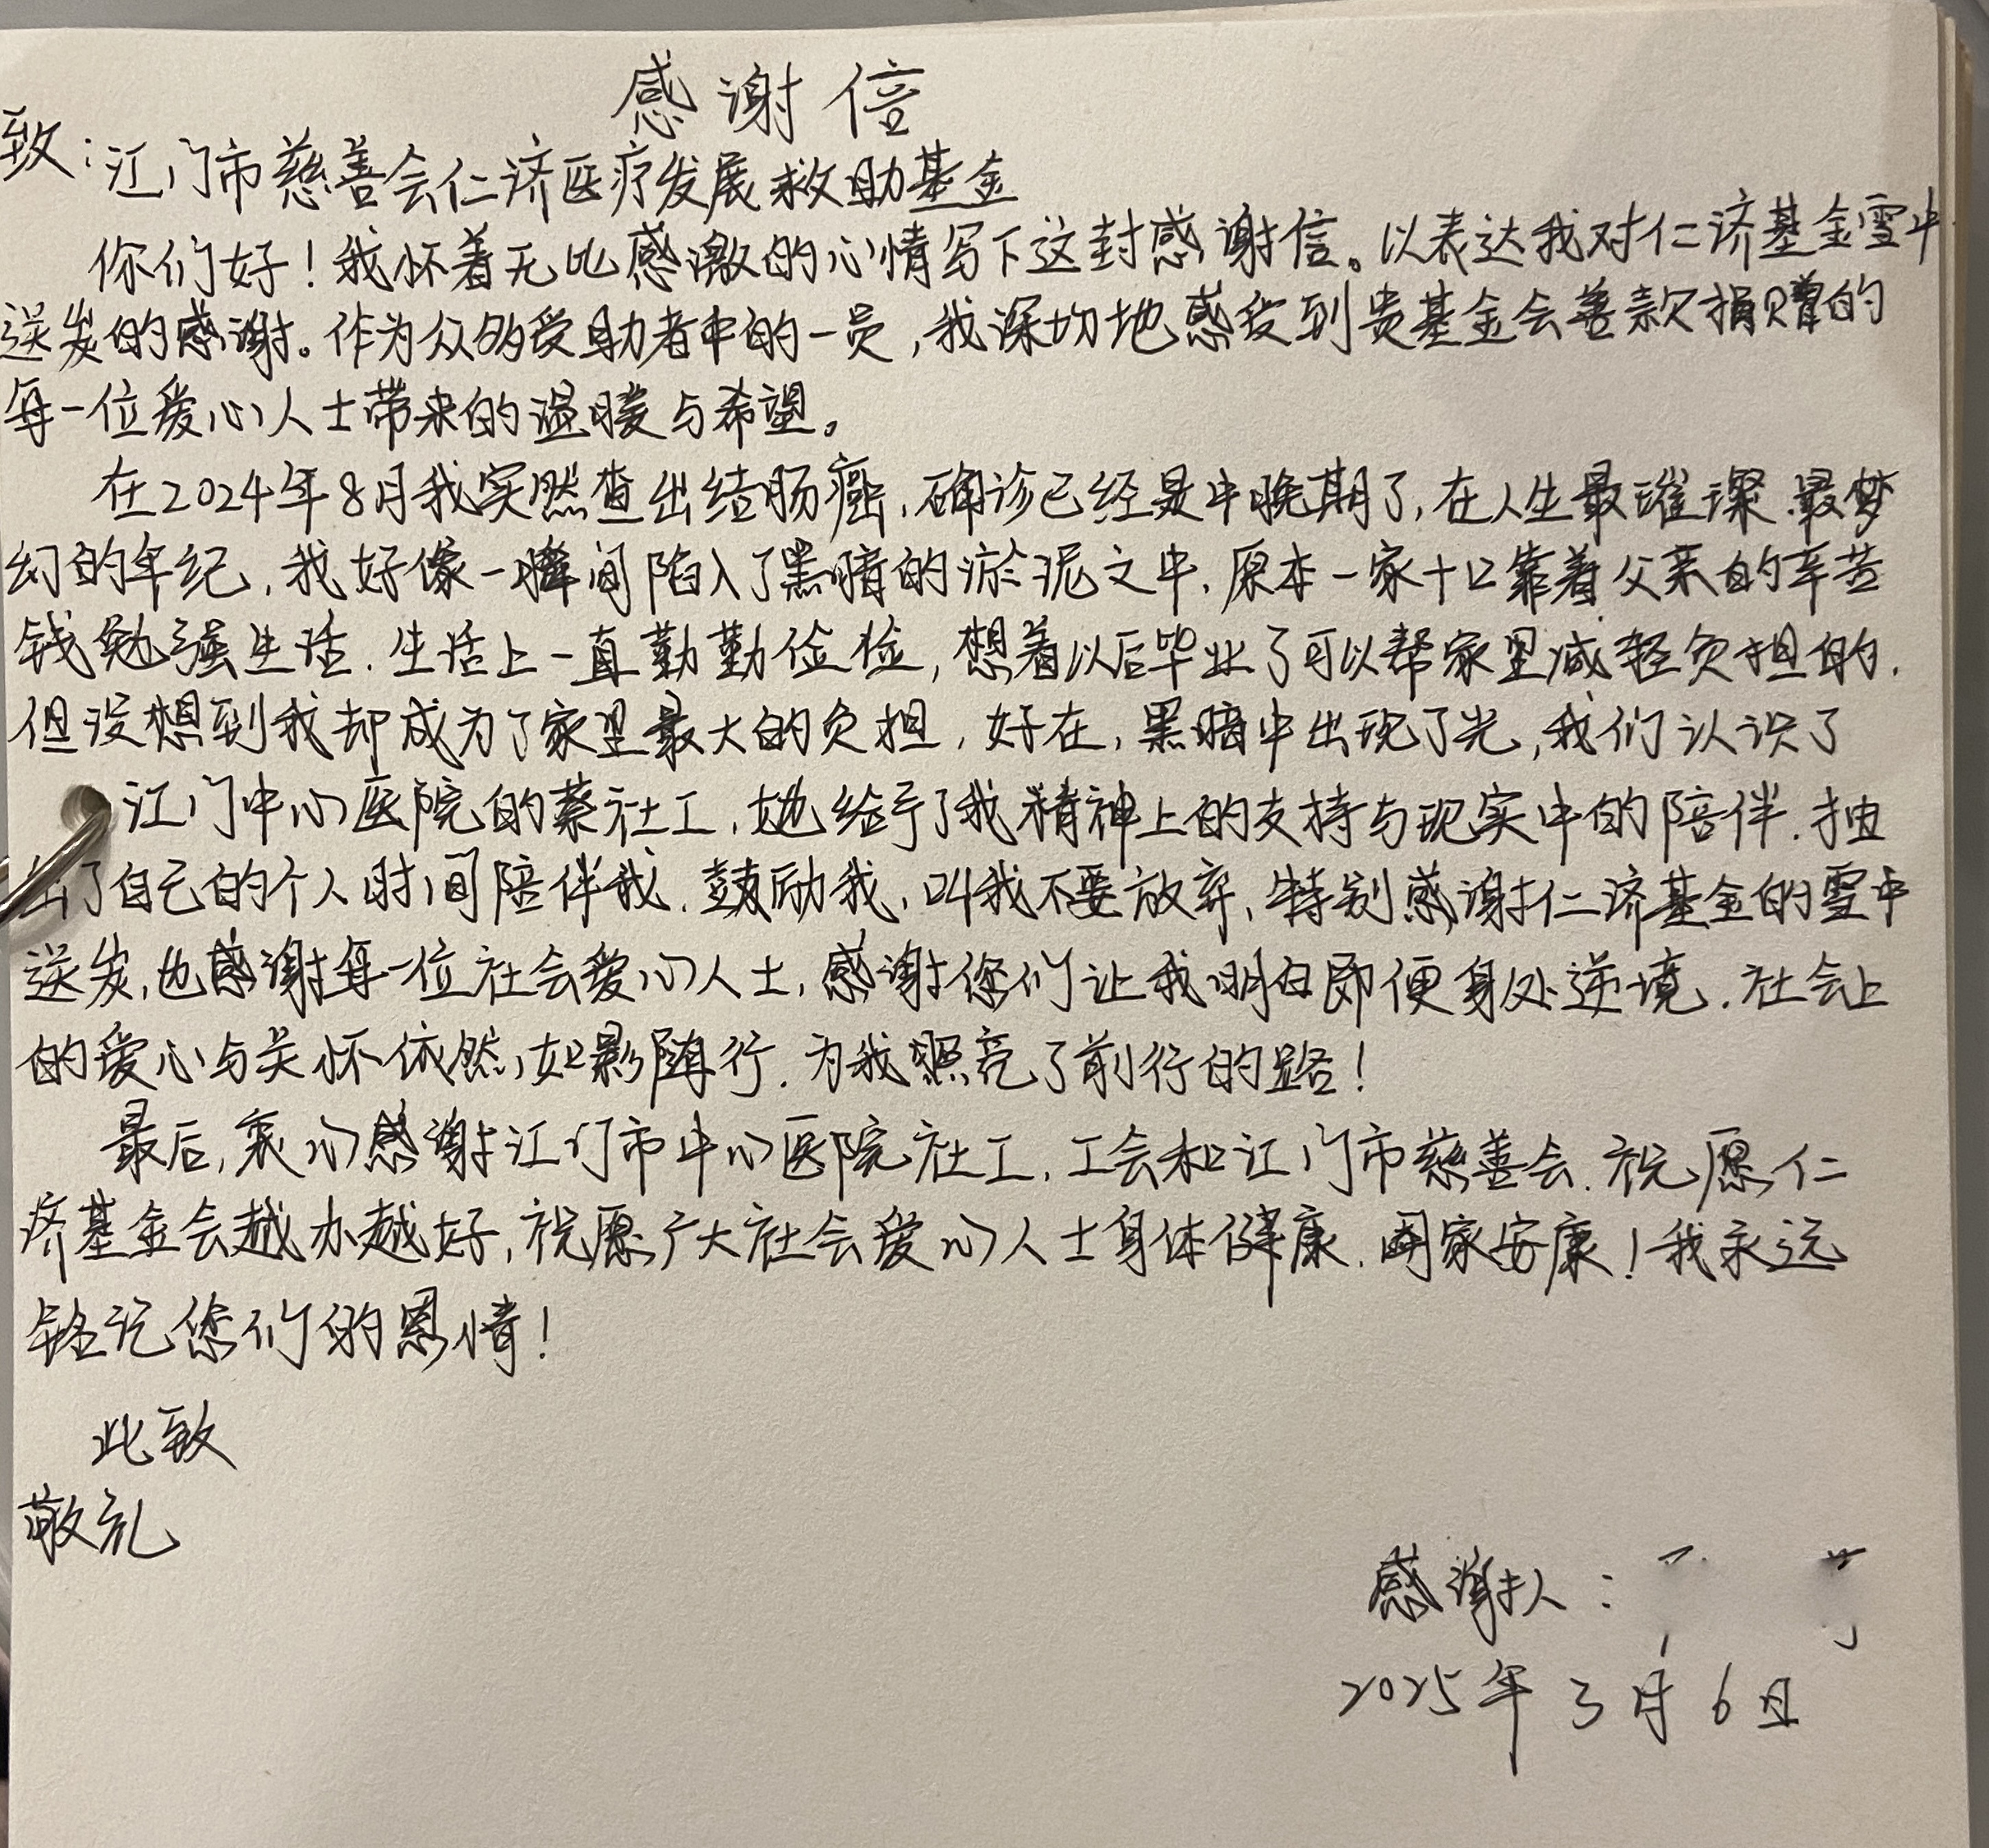 感谢信
致：江门市慈善会仁济医疗发展救助基金
你们好！我怀着无比感激的心情写下这封感谢信。以表达我对仁济基金雪中
送炭的感谢。作为众多受助者中的一员，我深切地感受到贵基金会善款捐赠的
每一位爱心人士带来的温暖与希望。
在2024年8月我突然查出结肠癌，确诊已经是中晚期了，在人生最璀璨、最梦
幻的年纪，我好像一瞬间陷入了黑暗的淤泥之中，原本一家十口靠着父亲的辛苦
钱勉强生活，生活上一直勤勤俭俭，想着以后毕业了可以帮家里减轻负担的，
但没想到我却成为了家里最大的负担，好在，黑暗中出现了光，我们认识了
江门中心医院的蔡社工，她给予了我精神上的支持与现实中的陪伴，抽
出了自己的个人时间陪伴我，鼓励我，叫我不要放弃，特别感谢仁济基金的雪中
送炭，也感谢每一位社会爱心人士，感谢您们让我明白即便身处逆境，社会上
的爱心与关怀依然如影随行，为我照亮了前行的路！
最后，衷心感谢江门市中心医院社工，工会和江门市慈善会，祝愿仁
济基金会越办越好，祝愿广大社会爱心人士身体健康，阖家安康！我永远
铭记您们的恩情！
此致
敬礼
感谢人：
2025年3月6日